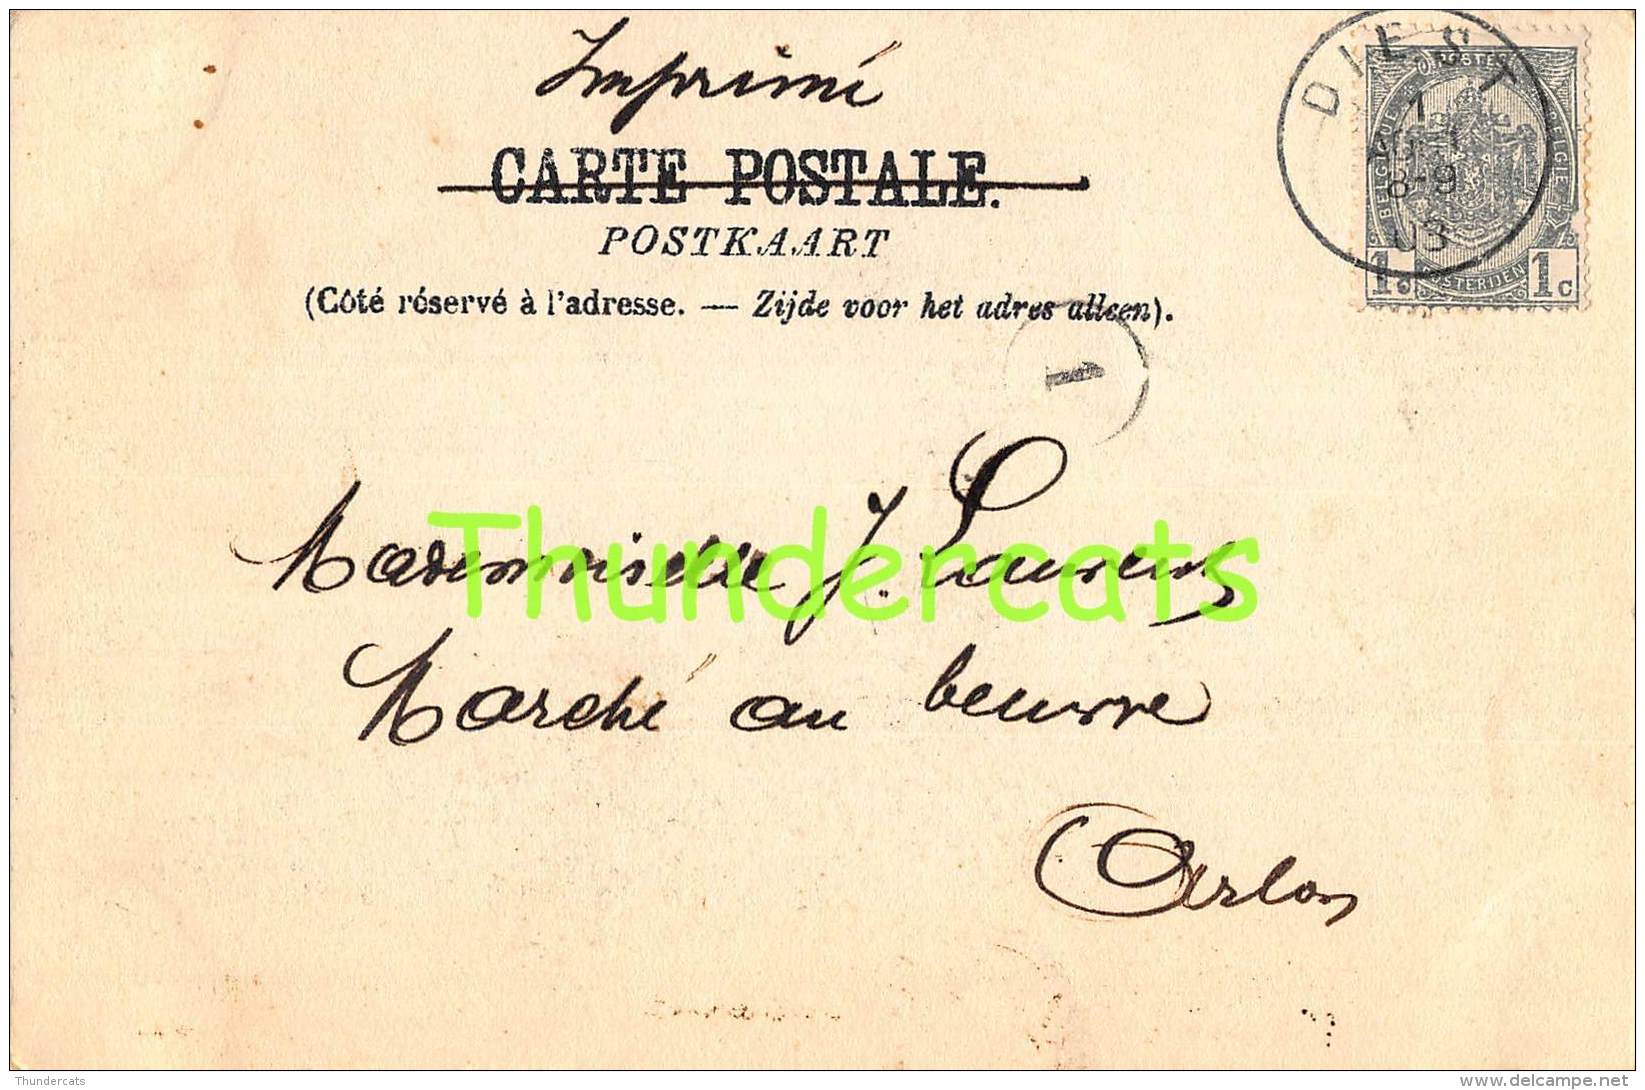 Imprimé
CARTE POSTALE.
POSTKAART
(Côté réservé à l'adresse. — Zijde voor het adres alleen).
DIEST
1
8-9
03
POSTES
BELGIQUE
BELGIE
POSTERIJEN
1c 1c
1
Mademoiselle J. Laurent
Marché au beurre
Arlon
Thundercats
Thundercats
delcampe.net